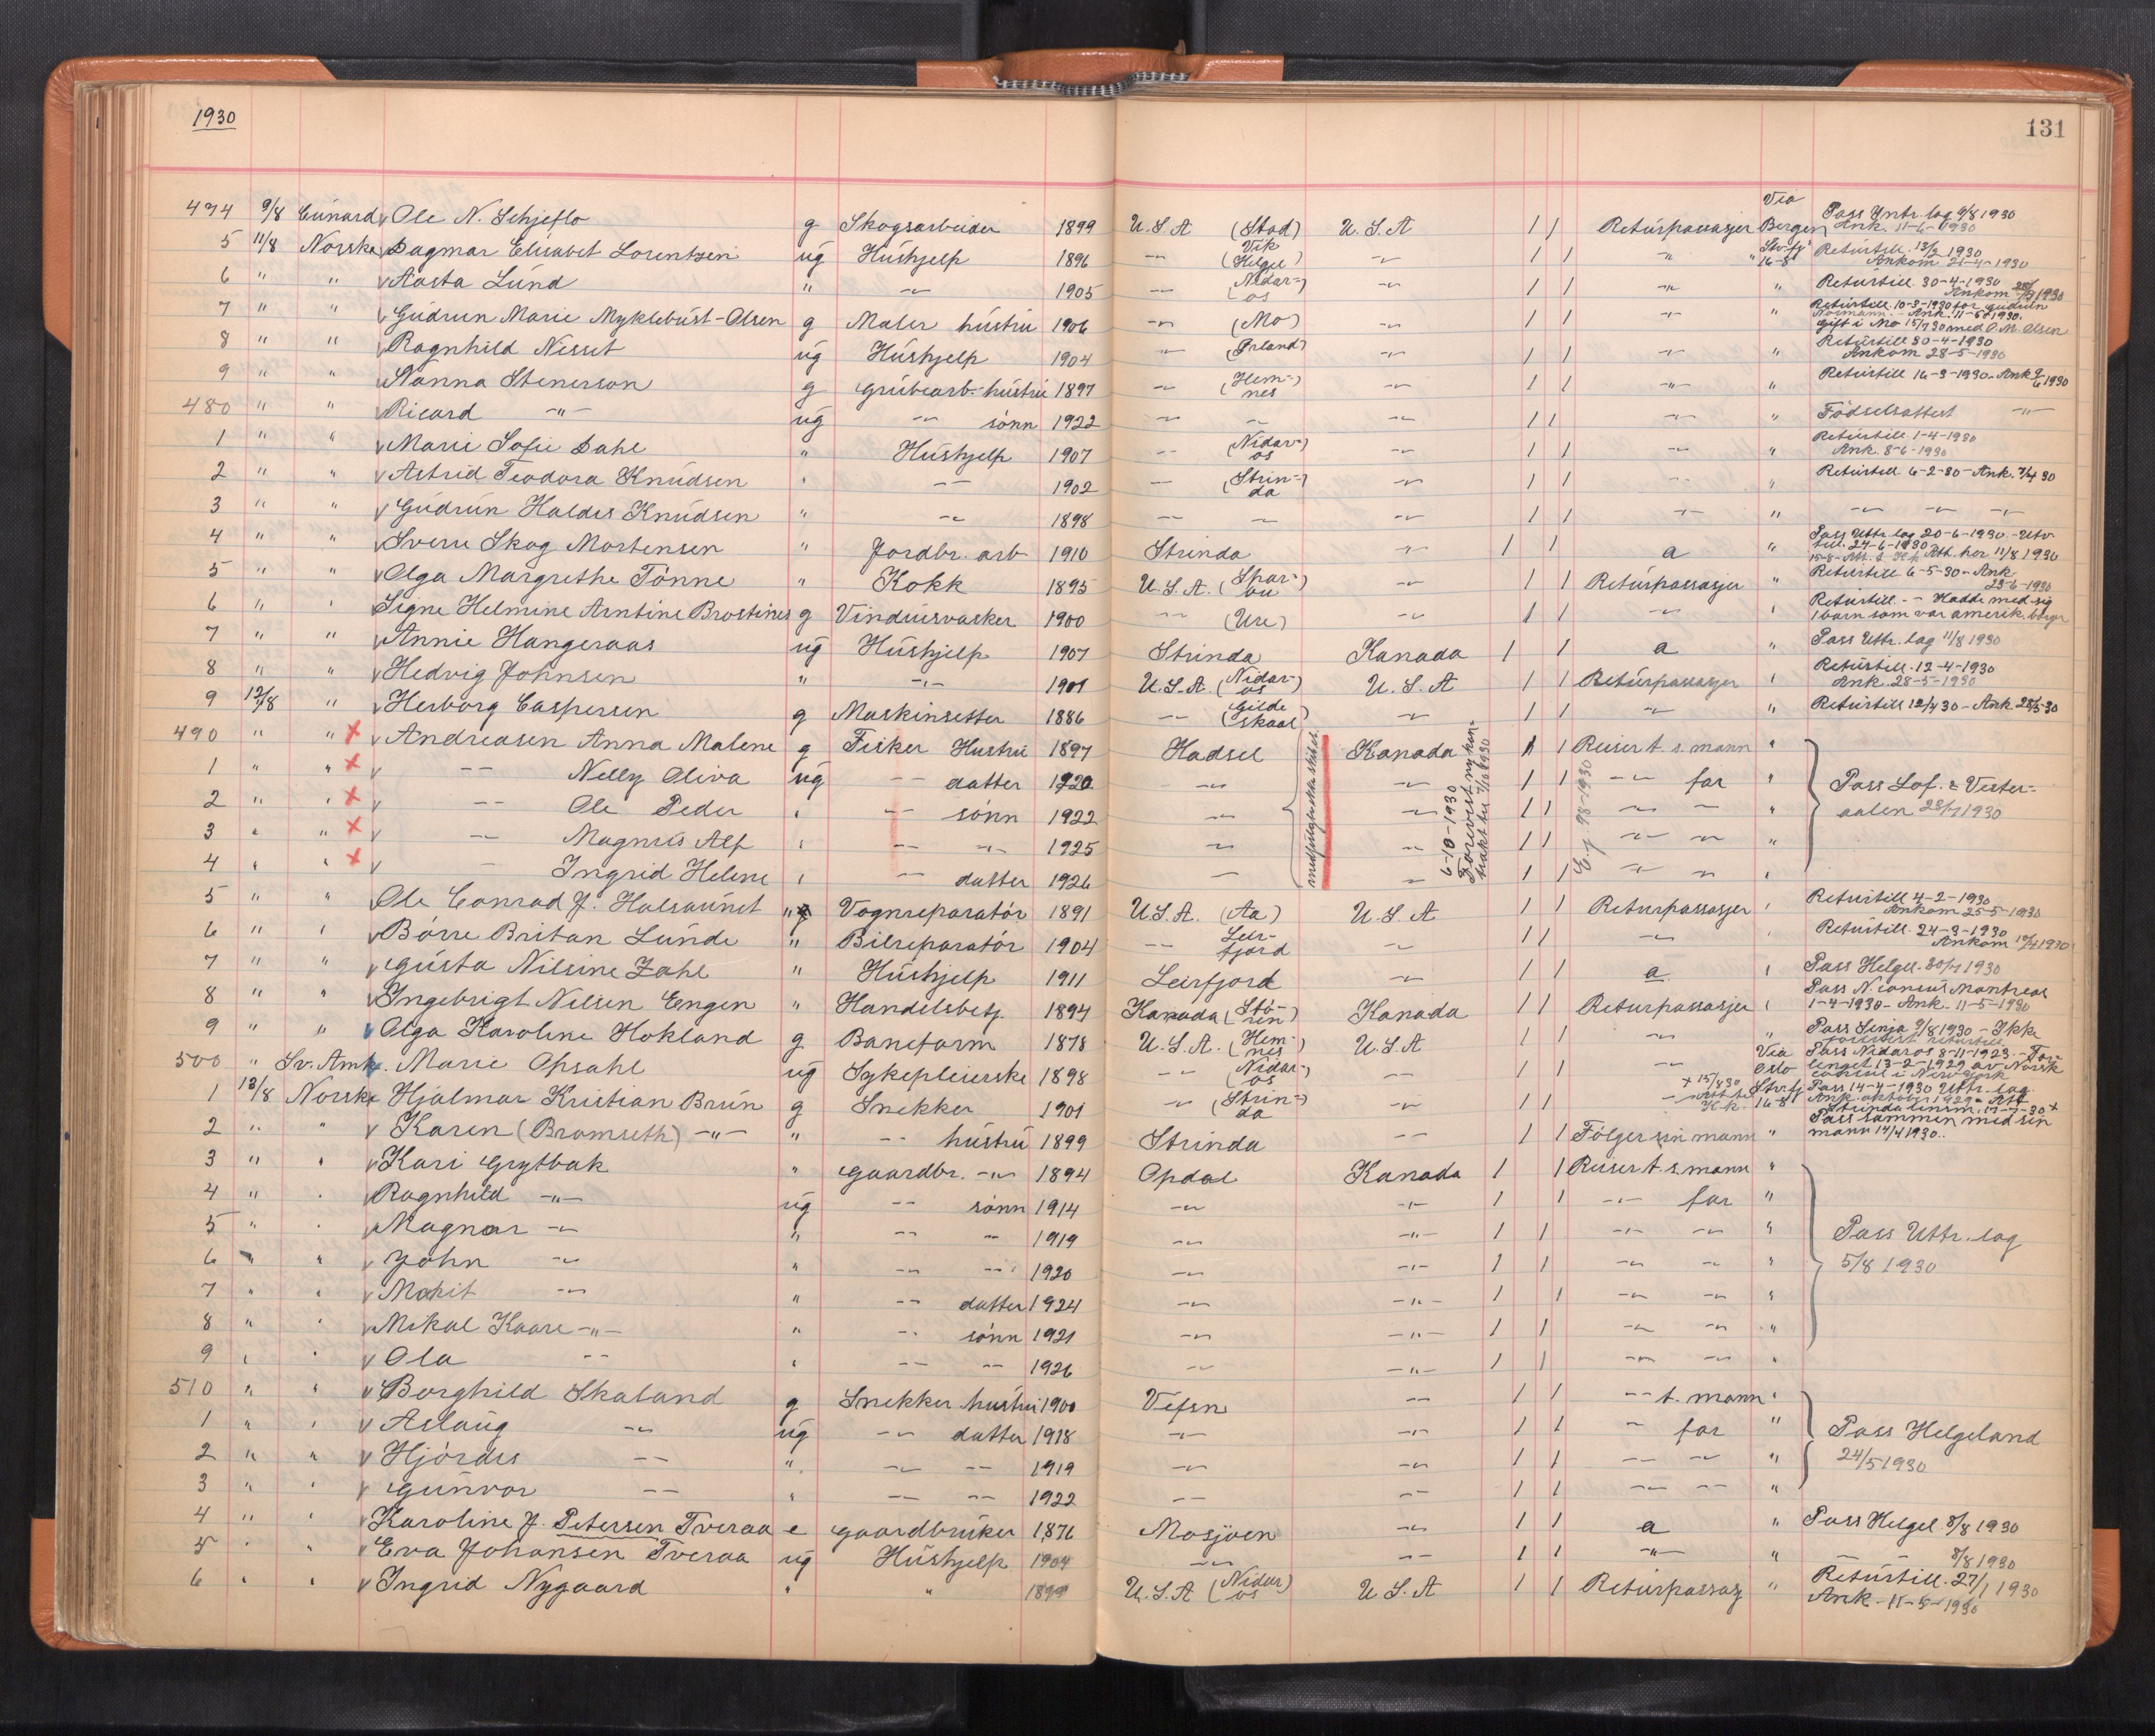 1930
131
474 9/8 Cunard Ole N. Schjeflo g Skogsarbeider 1899 U.S.A (Stod) U.S.A 1 1 Returpassasjer Via Bergen Pass Intr. lag 9/8 1930 Ank. 11-6-1930
5 11/8 Norske Dagmar Elisabet Lorentzen ug Hushjelp 1896 -"- (Vik Helgel) -"- 1 1 " " 16-8 Returtill. 13/2 1930 Ankom 21-4-1930
6 " " Aasta Lund " -"- 1905 -"- (Nidar=os) -"- 1 1 -"- " Returtill. 30-4-1930 Ankom 1930
7 " " Gudrun Marie Myklebust-Olsen g Maler hustru 1906 -"- (Mo) -"- 1 1 -"- " Returtill. 10-3-1930 for Gudrun Normann - Ank. 11-5-1930. Gift i Mo 15/7 30 med O.M. Olsen
8 " " Ragnhild Nesset ug Hushjelp 1904 -"- (Ørland) -"- 1 1 -"- " Returtill 30-4-1930 Ankom 28-5-1930
9 " " Nanna Stenerson g Grubearb.-hustru 1897 -"- (Hem=nes) -"- 1 1 -"- " Returtill 16-3-1930-Ank 9/6 1930
480 " " Ricard -"- ug -"- sønn 1922 -"- -"- -"- 1 1 -"- " Fødselsattest -"-
1 " " Marie Sofie Dahl " Hushjelp 1907 -"- (Nidar=os) -"- 1 1 -"- " Returtill 1-4-1930 Ank. 8-6-1930
2 " " Astrid Teodora Knudsen " -"- 1902 -"- (Strin=da) -"- 1 1 -"- " Returtill 6-2-30-Ank. 7/4 30
3 " " Gudrun Haldis Knudsen " -"- 1898 -"- -"- -"- 1 1 -"- " -"- -"- -"-
4 " " Sverre Skog Mortensen " Jordbr. arb 1910 Strinda -"- 1 1 a " Pass Uttr. lag 20-6-1930.-Utv till. 24-6-1930 Att. her 11/8 1930
5 " " Olga Margrethe Tønne " Kokk 1895 U.S.A. (Spar=bu) -"- 1 1 Returpassasjer " Returtill 6-5-30-Ank 23-6-1930
6 " " Signe Helmine Arntine Brostines g Vindusvasker 1900 -"- (Ure) -"- 1 1 -"- " Returtill. -"- Hadde med sig 1 barn som var amerik. borger
7 " " Annie Hangeraas ug Hushjelp 1907 Strinda Kanada 1 1 a " Pass Uttr. lag 11/8 1930
8 " " Hedvig Johnsen " -"- 1901 U.S.A. (Nidar=os) U.S.A 1 1 Returpassasjer " Returtill. 12-4-1930 Ank. 28-5-1930
9 12/8 " Herborg Caspersen g Maskinsetter 1886 -"- (Gilde skaal) -"- 1 1 -"- " Returtill 12/4 30-Ank 28/5-30
490 " " x Andreasen Anna Malene g Fisker Hustru 1897 Hadsel Kanada 1 1 Reiser t. s. mann " Pass Lof. & Vester=aalen 23/7 1930
1 " " x -"- Nelly Oliva ug -"- datter 1920 -"- -"- 1 1 -"- far "
2 " " x -"- Ole Peder " -"- sønn 1922 -"- -"- 1 1 -"- -"- "
3 " " x -"- Magnus Alf " -"- -"- 1925 -"- -"- 1 1 -"- -"- "
4 " " x -"- Ingrid Helene " -"- datter 1926 -"- -"- 1 1 -"- -"- "
6-10-1930 Forevist ny kontrakt 1930
E.f. 98-1930
5 " " Ole Conrad J. Halsaunet " g Vognreparatør 1891 U.S.A. (Aa) U.S.A 1 1 Returpassasjer " Returtill 4-2-1930 Ankom 25-5-1930
6 " " Børre Britan Lunde " Bilreparatør 1904 -"- Leir=fjord -"- 1 1 -"- " Returtill. 24-3-1930 Ankom 1930
7 " " Gusta Nilsine Zahl " Hushjelp 1911 Leirfjord -"- 1 1 a " Pass Helgel. 30/7 1930
8 " " Ingebrigt Nilsen Engen " Handelsbetj. 1894 Kanada (Stø=ren) Kanada 1 1 Returpassasjer " Pass N. consul Montreal 1-4-1930-Ank. 11-5-1930
9 " " Olga Karoline Hokland g Baneform 1878 U.S.A. (Hem=nes) U.S.A 1 1 -"- " Pass Senja 9/8 1930 - Ikke forevist returtill.
500 " Sv. Amk. Marie Opsahl ug Sykepleierske 1898 -"- (Nidar=os) -"- 1 1 -"- Via Oslo Pass Nidaros 8-11-1923.-Forlenget 13-2-1929 av Norsk consul i New York
1 13/8 Norske Hjalmar Kristian Brun g Snekker 1901 -"- (Strin=da) -"- 1 1 16-8 Pass 14-4-1930 Uttr. lag. Ank. oktober 1929-Att Strinda lensm. 17-7-30 +
2 " " Karen (Bromseth) -"- " -"- hustru 1899 Strinda -"- 1 1 Følger sin mann " Pass sammen med sin mann 14/4 1930.
3 " " Kari Grytbak " Gaardbr. -"- 1894 Opdal Kanada 1 1 Reiser t. s. mann " Pass Uttr. lag 5/8 1930
4 " " Ragnhild -"- ug -"- sønn 1914 -"- -"- 1 1 -"- far "
5 " " Magnar -"- " -"- -"- 1919 -"- -"- 1 1 -"- -"- "
6 " " John -"- " -"- -"- 1920 -"- -"- 1 1 -"- -"- "
7 " " Marit -"- " -"- datter 1924 -"- -"- 1 1 -"- -"- "
8 " " Mikal Kaare -"- " -"- sønn 1921 -"- -"- 1 1 -"- -"- "
9 " " Ola -"- " -"- -"- 1926 -"- -"- 1 1 -"- -"- "
510 " " Borghild Skaland g Snekker hustru 1900 Vefsn -"- 1 1 -"- t. mann " Pass Helgeland 24/5 1930
1 " " Aslaug -"- ug -"- datter 1918 -"- -"- 1 1 -"- far "
2 " " Hjørdis -"- " -"- -"- 1919 -"- -"- 1 1 -"- -"- "
3 " " Gunvor -"- " -"- -"- 1922 -"- -"- 1 1 -"- -"- "
4 " " Karoline J. Petersen Tveraa e Gaardbruker 1876 Mosjøen -"- 1 1 a " Pass Helgel. 8/8 1930
5 " " Eva Johansen Tveraa ug Hushjelp 1904 -"- -"- 1 1 -"- " -"- 8/8 1930
6 " " Ingrid Nygaard " " 1899 U.S.A (Nidar os) U.S.A 1 1 Returpassasj " Returtill. 27/1 1930 Ank-11-5-1930